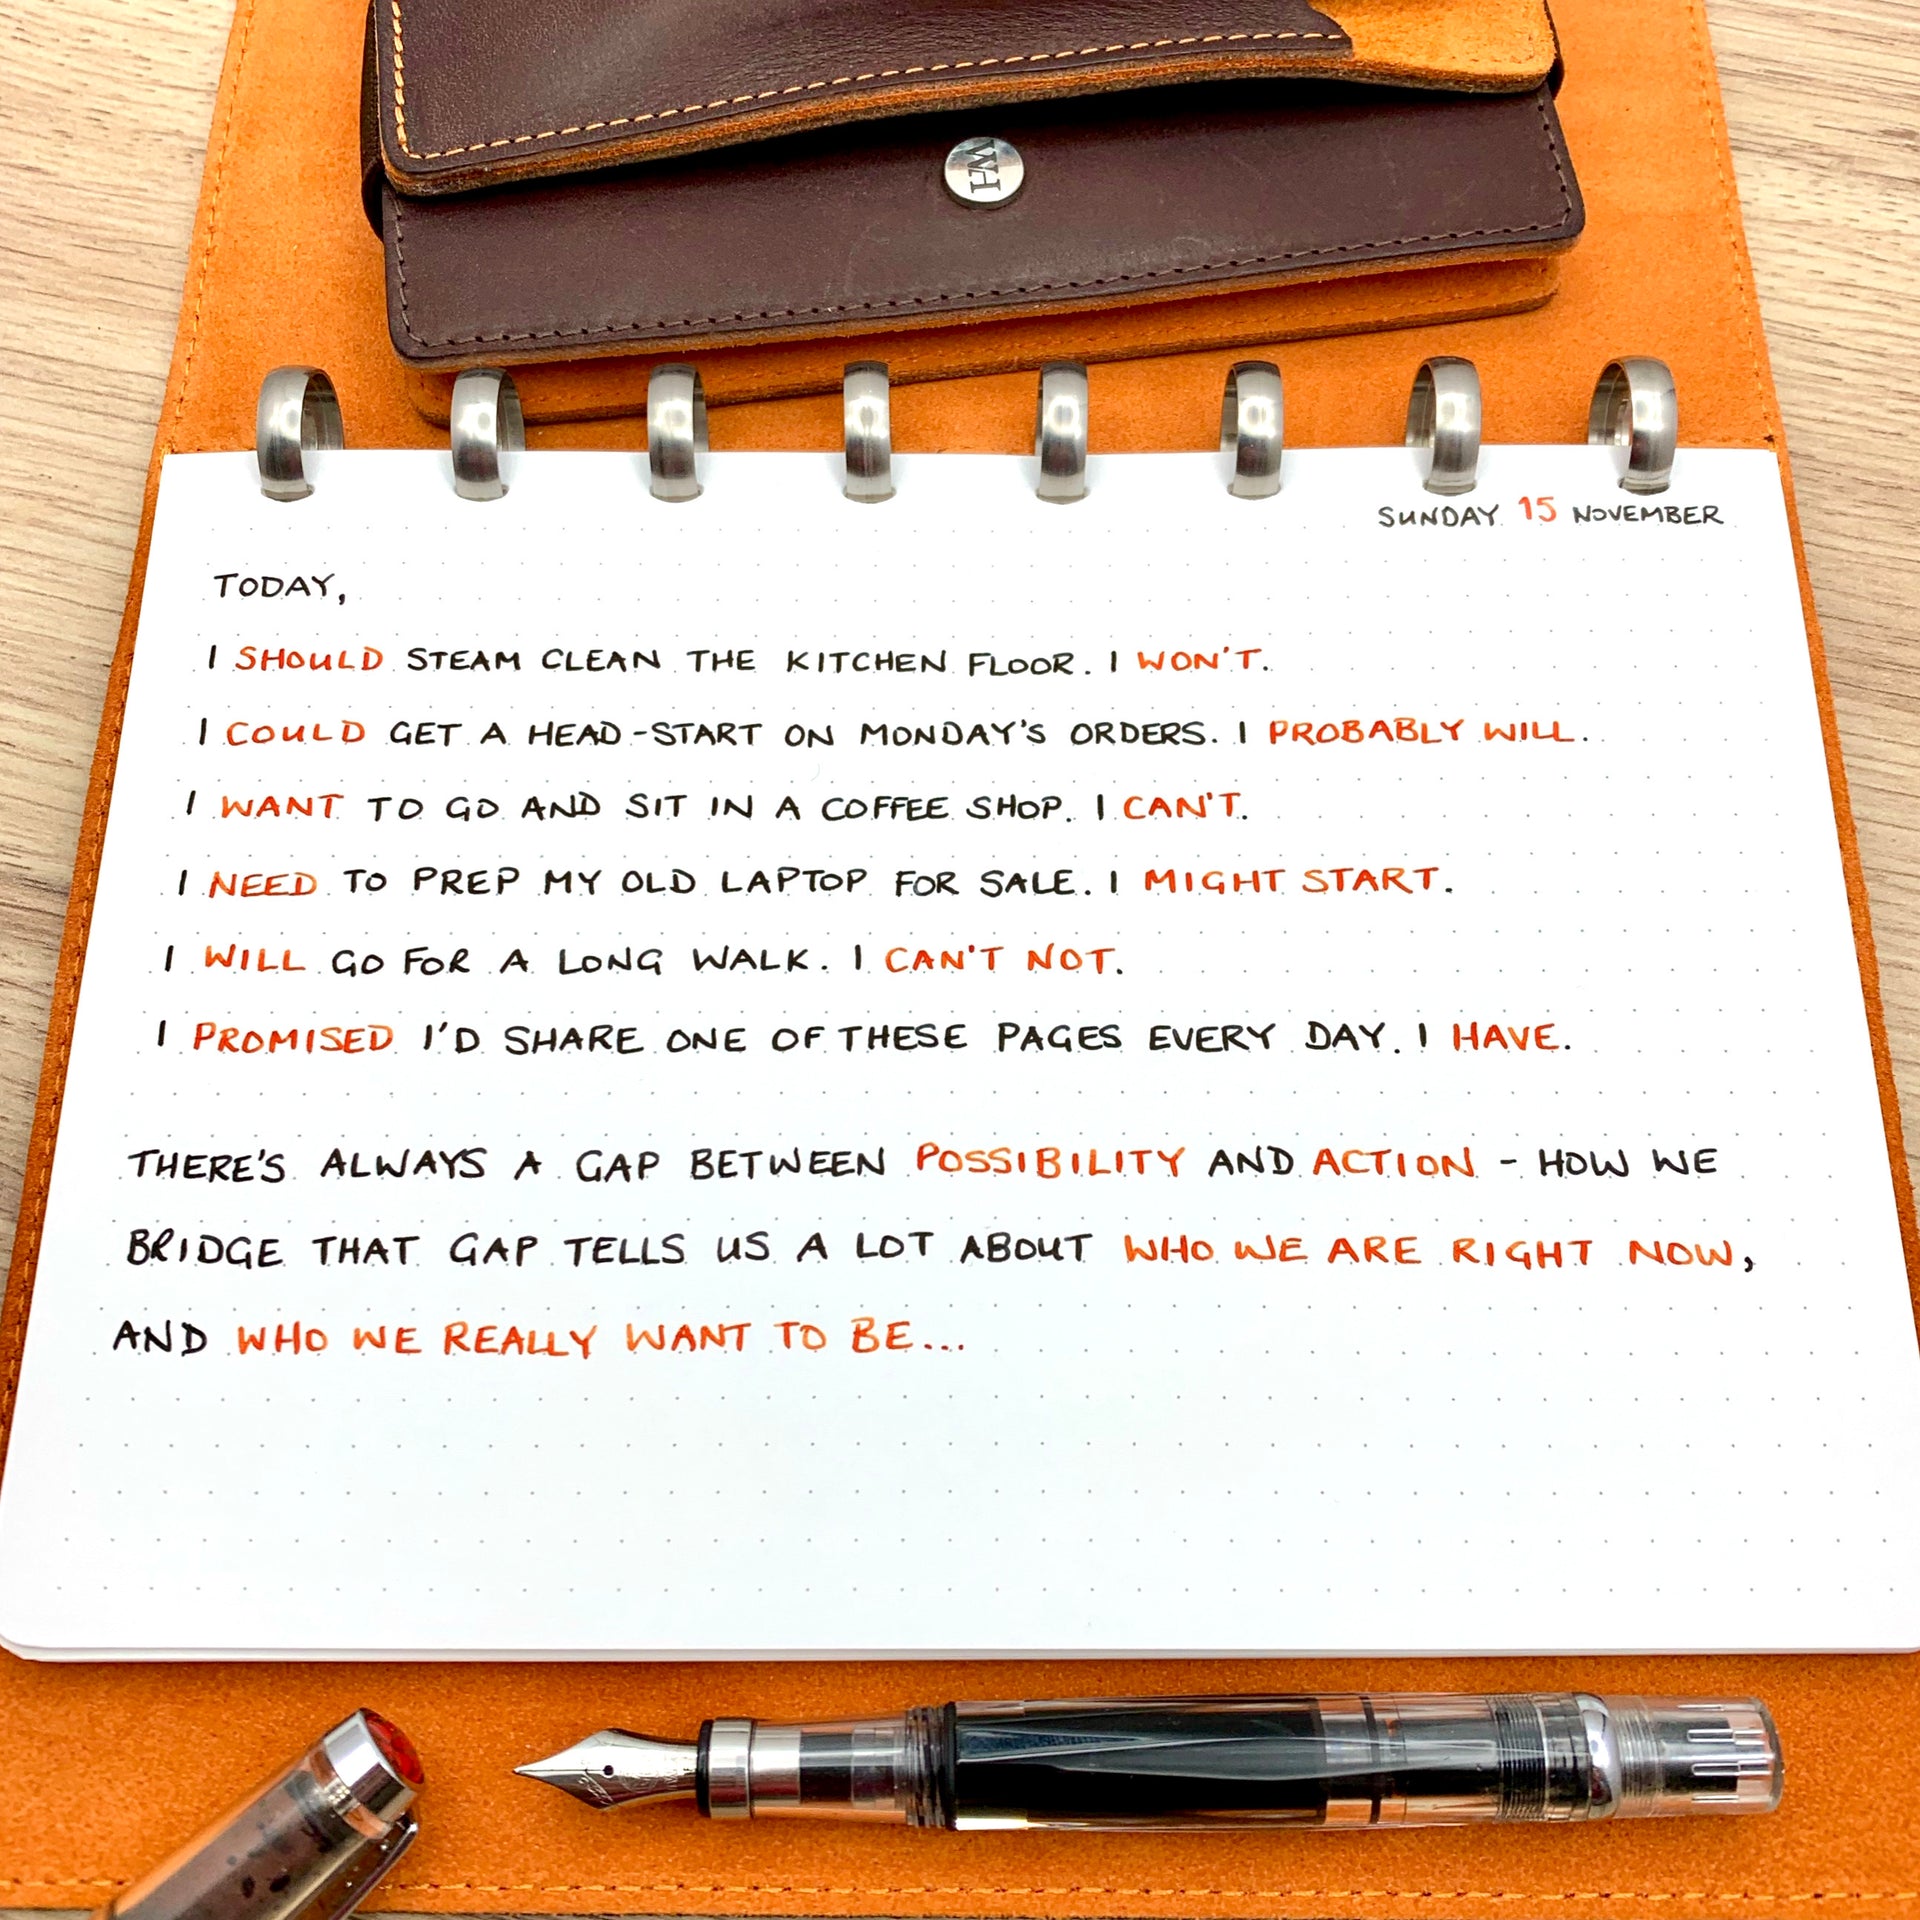 WH
SUNDAY 15 NOVEMBER
TODAY,
I SHOULD STEAM CLEAN THE KITCHEN FLOOR. I WON'T.
I COULD GET A HEAD-START ON MONDAY'S ORDERS. I PROBABLY WILL.
I WANT TO GO AND SIT IN A COFFEE SHOP. I CAN'T.
I NEED TO PREP MY OLD LAPTOP FOR SALE. I MIGHT START.
I WILL GO FOR A LONG WALK. I CAN'T NOT.
I PROMISED I'D SHARE ONE OF THESE PAGES EVERY DAY. I HAVE.
THERE'S ALWAYS A GAP BETWEEN POSSIBILITY AND ACTION - HOW WE
BRIDGE THAT GAP TELLS US A LOT ABOUT WHO WE ARE RIGHT NOW,
AND WHO WE REALLY WANT TO BE...